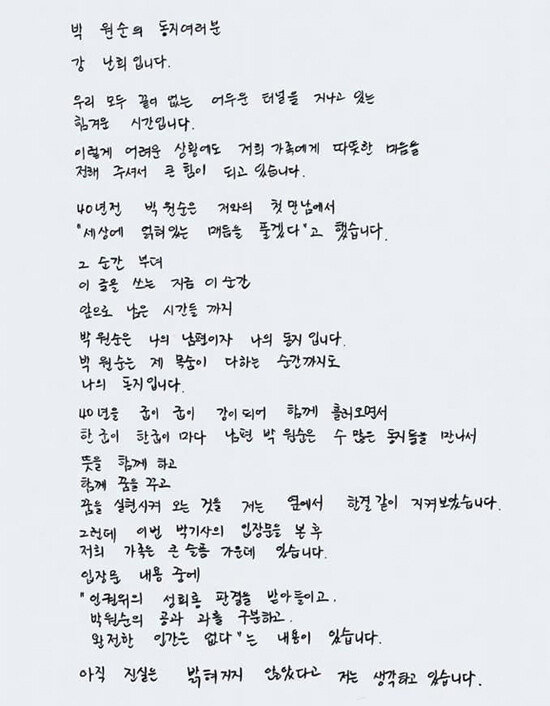 박 원순의 동지여러분
강 난희입니다.
우리 모두 끝이 없는 어두운 터널을 지나고 있는
힘겨운 시간입니다.
이렇게 어려운 상황에도 저희 가족에게 따뜻한 마음을
전해 주셔서 큰 힘이 되고 있습니다.
40년전 박 원순은 저와의 첫 만남에서
"세상에 얽혀있는 매듭을 풀겠다"고 했습니다.
그 순간 부터
이 글을 쓰는 지금 이 순간
앞으로 남은 시간들 까지
박 원순은 나의 남편이자 나의 동지 입니다.
박 원순은 제 목숨이 다하는 순간까지도
나의 동지입니다.
40년을 굽이 굽이 강이되어 함께 흘러오면서
한 굽이 한굽이 마다 남편 박 원순은 수 많은 동지들을 만나서
뜻을 함께 하고
함께 꿈을 꾸고
꿈을 실현시켜 오는 것을 저는 옆에서 한결 같이 지켜보았습니다.
그런데 이번 박기사의 입장문을 본 후
저희 가족은 큰 슬픔 가운데 있습니다.
입장문 내용 중에
"인권위의 성희롱 판결을 받아들이고.
박원순의 공과 과를 구분하고.
완전한 인간은 없다"는 내용이 있습니다.
아직 진실은 밝혀지지 않았다고 저는 생각하고 있습니다.